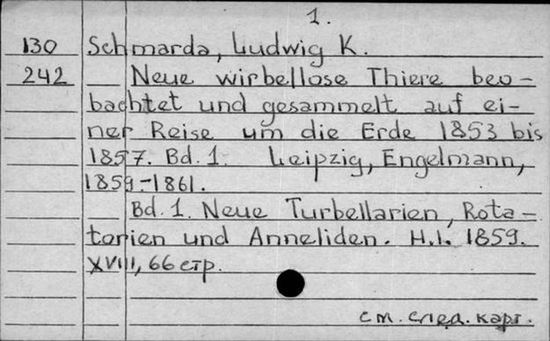 1.
130 Schmarda, Ludwig K.
242 Neue wirbellose Thiere beo-
bachtet und gesammelt auf ei-
ner Reise um die Erde 1853 bis
1857. Bd. 1. Leipzig, Engelmann,
1859-1861.
Bd. 1. Neue Turbellarien, Rota-
torien und Anneliden. H.1. 1859.
XVIII, 66 стр.
см. след. карт.